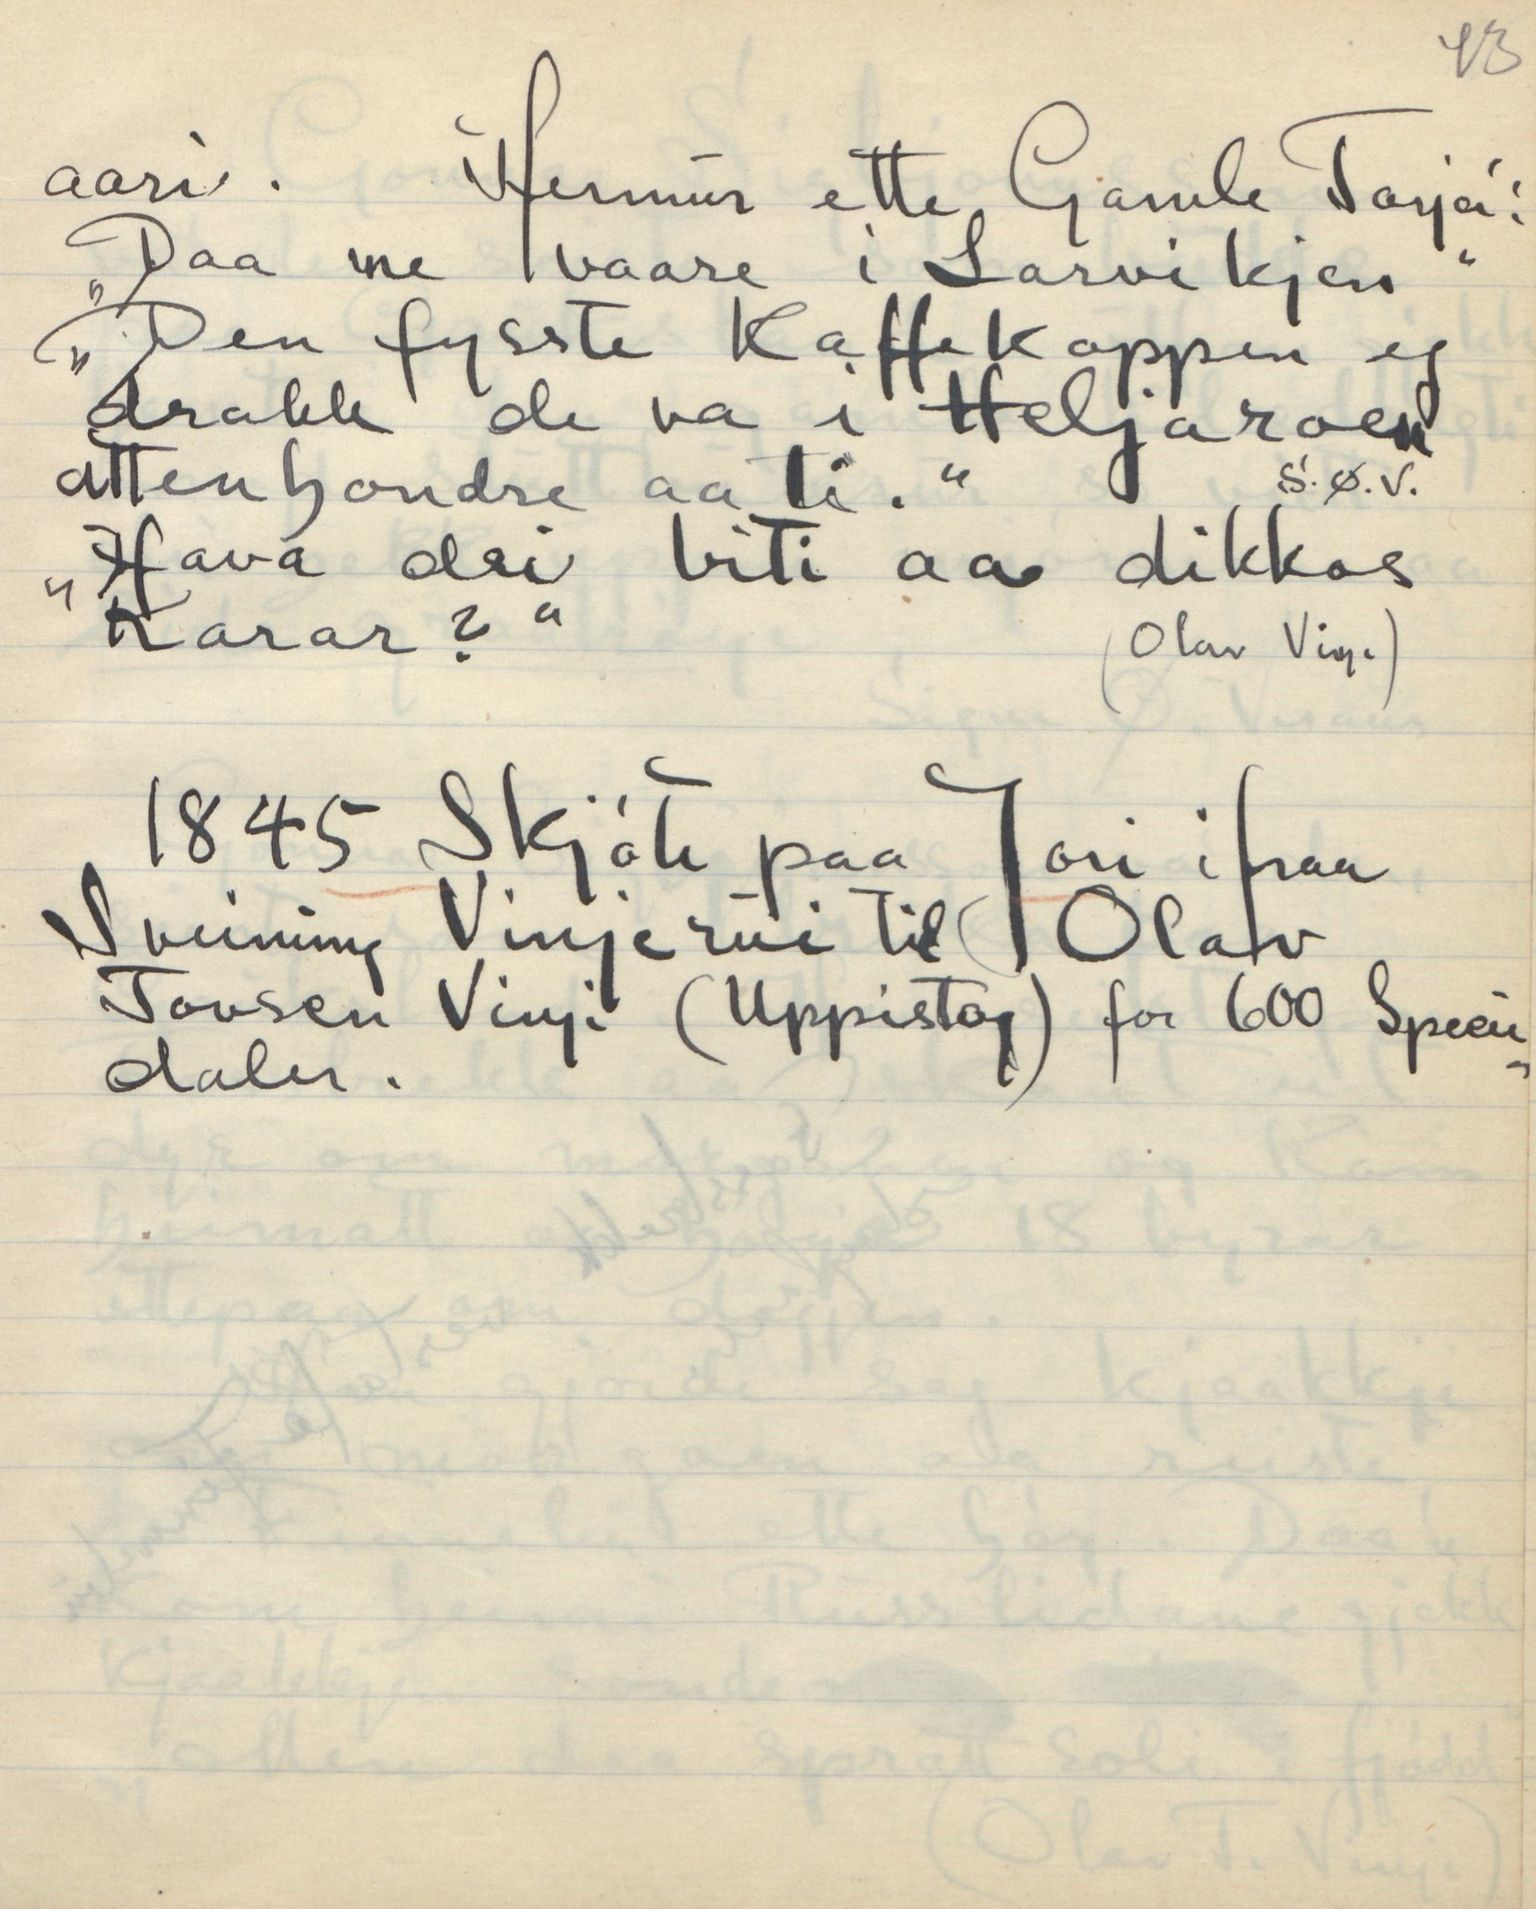 43
aari. Hermur ette Gamle Tarjá:
„Daa me vaare i Larvikjen“
„Den fysste Kaffekoppen eg
drakk de va i Heljaroen
attenhondre aa ti.“ S.Ø.V.
„Hava dei biti aa dikkos
Karar?“ (Olav Vinje)
1845 Skjöte paa Jori ifraa
Sveining Vinjerui til Olav
Tovsen Vinje (Uppistog) for 600 Speciedaler.